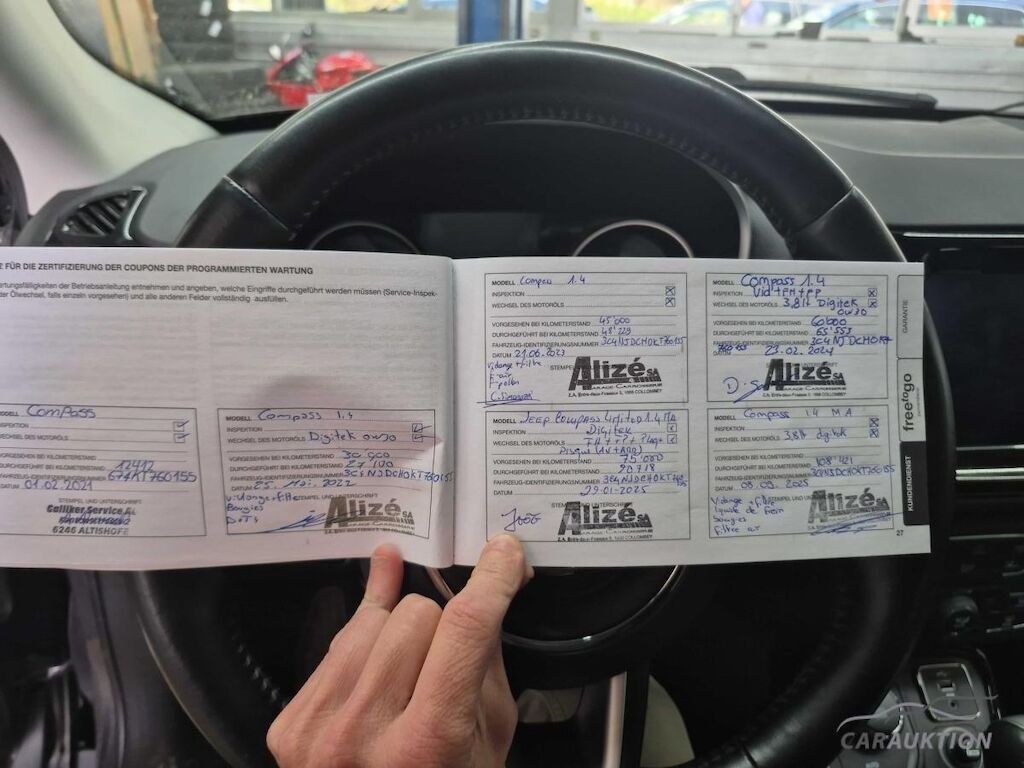 FÜR DIE ZERTIFIZIERUNG DER COUPONS DER PROGRAMMIERTEN WARTUNG
wartungsfälligkeiten der Betriebsanleitung entnehmen und angeben, welche Eingriffe durchgeführt werden müssen (Service-Inspek-
der Ölwechsel, falls einzeln vorgesehen) und alle anderen Felder vollständig ausfüllen.
Compass
INSPEKTION
WECHSEL DES MOTORÖLS
12412
674KT760155
DATUM 01.02.2021
STEMPEL UND UNTERSCHRIFT
Galliker Service AG
6246 ALTISHOFEN
MODELL Compass 1.4
INSPEKTION
WECHSEL DES MOTORÖLS Digitek 0W30
VORGESEHEN BEI KILOMETERSTAND 30.000
DURCHGEFÜHRT BEI KILOMETERSTAND
FAHRZEUG-IDENTIFIZIERUNGSNUMMER
DATUM 2022
STEMPEL UND UNTERSCHRIFT
Vidange + filtre
Bougies
Alizé SA
GARAGE CARROSSERIE
MODELL Compass 1.4
INSPEKTION
WECHSEL DES MOTORÖLS
VORGESEHEN BEI KILOMETERSTAND 45'000
DURCHGEFÜHRT BEI KILOMETERSTAND 48'229
FAHRZEUG-IDENTIFIZIERUNGSNUMMER 3C4NJDCH0KT760155
DATUM 21.06.2023
Vidange + filtre
F. air
F. pollen
Alizé SA
GARAGE CARROSSERIE
MODELL Compass 1.4
INSPEKTION Vid + FH + FP
WECHSEL DES MOTORÖLS 3,8lt Digitek
0W30
VORGESEHEN BEI KILOMETERSTAND 60000
DURCHGEFÜHRT BEI KILOMETERSTAND 65'555
FAHRZEUG-IDENTIFIZIERUNGSNUMMER 3C4NJDCH0KT
760155
DATUM 23.02.2024
Alizé SA
GARAGE CARROSSERIE
MODELL Jeep Compass Limited 1.4 MA
INSPEKTION Digitek
WECHSEL DES MOTORÖLS FH + FP + Plaq +
Disque (AV + ARR)
VORGESEHEN BEI KILOMETERSTAND 75'000
DURCHGEFÜHRT BEI KILOMETERSTAND 90718
FAHRZEUG-IDENTIFIZIERUNGSNUMMER
DATUM 29-01-2025
STEMPEL UND UNTERSCHRIFT
Alizé SA
GARAGE CARROSSERIE
MODELL Compass 1.4 MA
INSPEKTION
WECHSEL DES MOTORÖLS 3,8lt digitek
VORGESEHEN BEI KILOMETERSTAND
DURCHGEFÜHRT BEI KILOMETERSTAND 108'421
FAHRZEUG-IDENTIFIZIERUNGSNUMMER 3C4NJDCH0KT760155
DATUM 2025
STEMPEL UND UNTERSCHRIFT
Vidange + filtre
liquide de frein
bougies
filtre air
Alizé SA
GARAGE CARROSSERIE
GARANTIE
freetogo
KUNDENDIENST
27
CARAUKTION